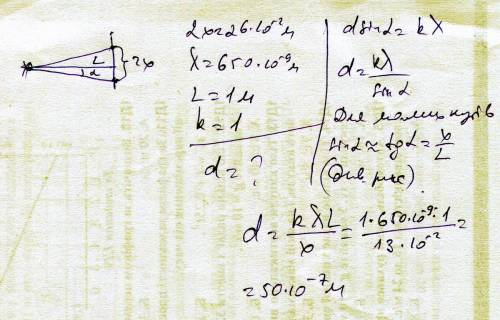 L
α
2x
2x=26·10⁻²м
λ=650·10⁻⁹м
L=1м
k=1
d=?
d sinα=kλ
d=kλ/sinα
Для малих кутів
sinα≈tgα=x/L
(Див. рис).
d=kλL/x=1·650·10⁻⁹·1/13·10⁻²=
=50·10⁻⁷м